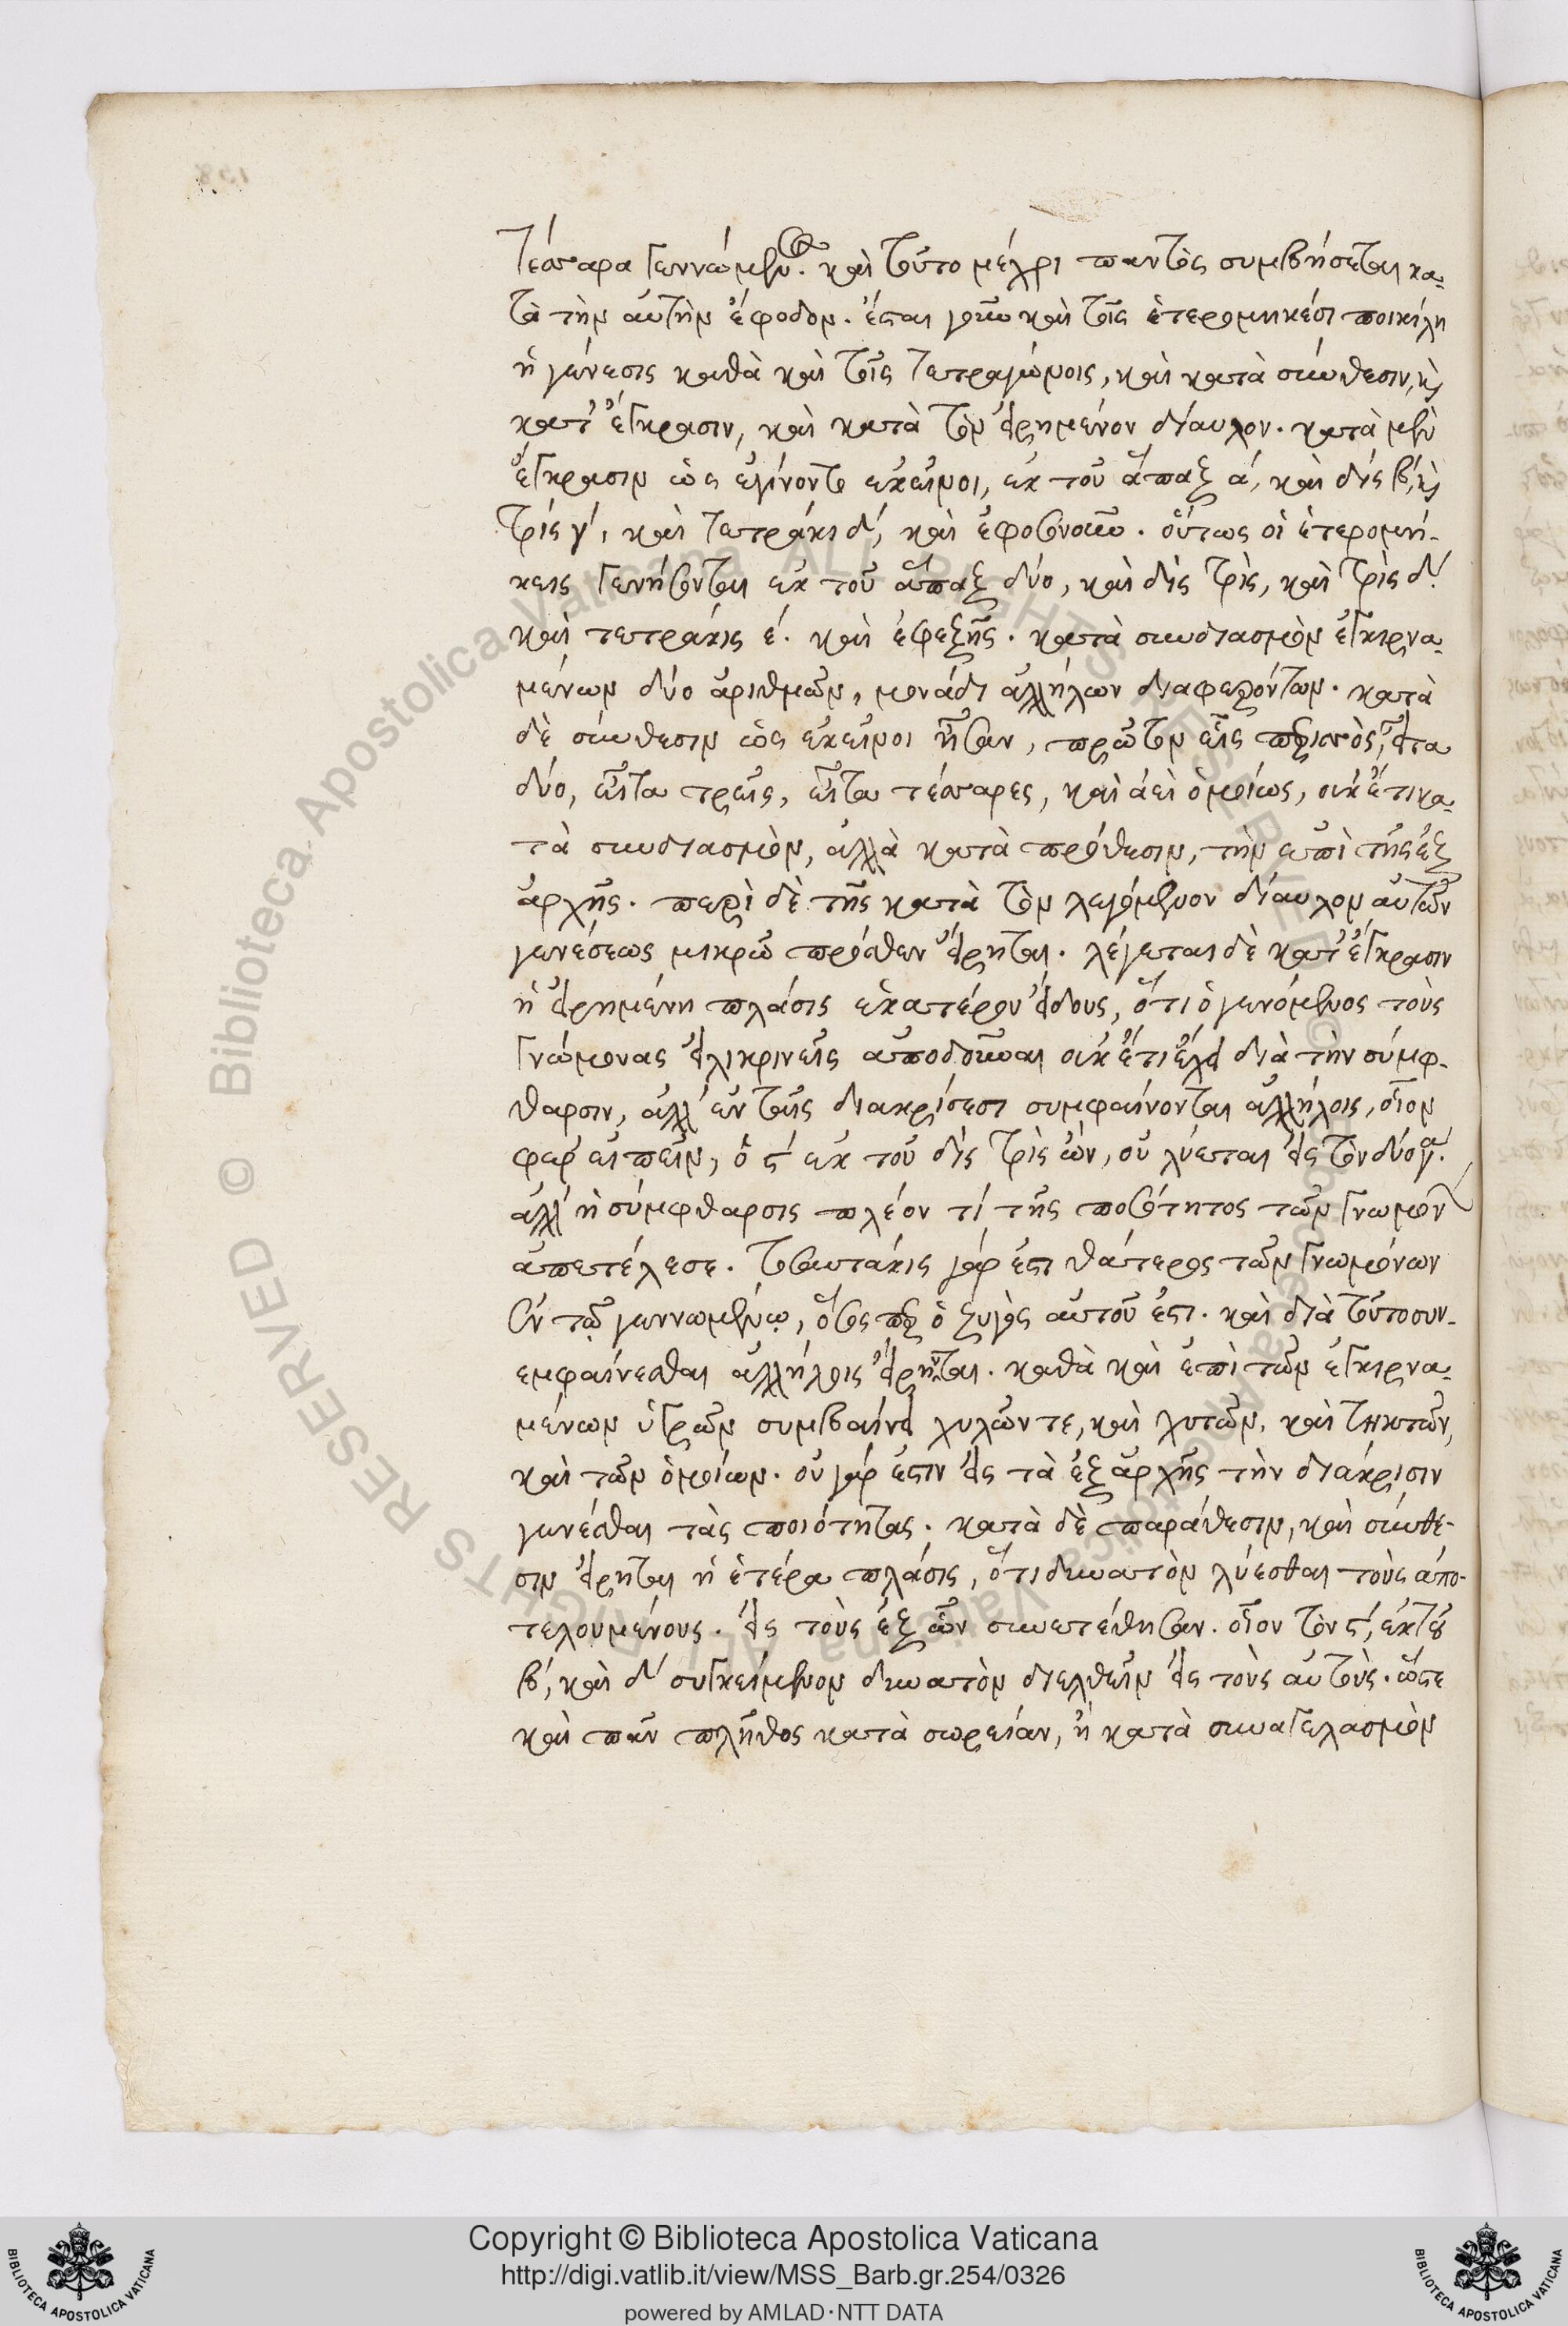 τέσσαρα γεννώμενος. καὶ τοῦτο μέχρι παντὸς συμβήσεται κα-
τὰ τὴν αὐτὴν ἔφοδον. ἔσται γοῦν καὶ τοῖς ἑτερομηκέσι ποικίλη
ἡ γένεσις καθὰ καὶ τοῖς τετραγώνοις, καὶ κατὰ σύνθεσιν, καὶ
κατ' ἔγκρασιν, καὶ κατὰ τὸν εἰρημένον δίαυλον. κατὰ μὲν
ἔγκρασιν ὡς ἐγίνοντο ἐκεῖνοι, ἐκ τοῦ ἅπαξ ά, καὶ δίς β΄, καὶ
τρίς γ΄, καὶ τετράκι δ΄, καὶ ἐφ' ὁσονοῦν. οὕτως οἱ ἑτερομή-
κεις γενήσονται ἐκ τοῦ ἅπαξ δύο, καὶ δὶς τρὶς, καὶ τρὶς δ΄.
καὶ τετράκις έ. καὶ ἐφεξῆς. κατὰ συνδιασμὸν ἐγκιρνα-
μένων δύο ἀριθμῶν, μονάδι ἀλλήλων διαφερόντων. κατὰ
δὲ σύνθεσιν ὡς ἐκεῖνοι ἦσαν, πρῶτον εἷς περισσὸς, εἶτα
δύο, εἶτα τρεῖς, εἶτα τέσσαρες, καὶ ἀεὶ ὁμοίως, οὐκ ἔτι κα-
τὰ συνδιασμὸν, ἀλλὰ κατὰ πρόσθεσιν, τὴν ἐπὶ τῆς ἐξ
ἀρχῆς. περὶ δὲ τῆς κατὰ τὸν λεγόμενον δίαυλον αὐτῶν
γενέσεως μικρῷ πρόσθεν εἴρηται. λέγεται δὲ κατ' ἔγκρασιν
ἡ εἰρημένη πλάσις ἑκατέρου εἴδους, ὅτι ὁ γενόμενος τοὺς
γνώμονας εἰλικρινεῖς ἀποδοῦναι οὐκ ἔτι ἔχει διὰ τὴν σύμφ-
θαρσιν, ἀλλ' ἐν ταῖς διακρίσεσι συμφαίνονται ἀλλήλοις, οἷον
φέρ' εἰπεῖν, ὁ ϛ΄ ἐκ τοῦ δὶς τρὶς ὢν, οὐ λύεται εἰς τὸν δύο γ΄.
ἀλλ' ἡ σύμφθαρσις πλέον τί τῆς ποσότητος τῶν γνωμόνων
ἀπετέλεσε. τοσαυτάκις γάρ ἐστι θάτερος τῶν γνωμόνων
ἐν τῷ γεννωμένῳ, ὅσος περ ὁ ζυγὸς αὐτοῦ ἐστι. καὶ διὰ τοῦτο συν-
εμφαίνεσθαι ἀλλήλοις εἴρηνται. καθὰ καὶ ἐπὶ τῶν ἐγκιρνα-
μένων ὑγρῶν συμβαίνει χυλῶν τε, καὶ χυτῶν, καὶ τηκτῶν,
καὶ τῶν ὁμοίων. οὐ γάρ ἐστιν εἰς τὰ ἐξ ἀρχῆς τὴν διάκρισιν
γενέσθαι τὰς ποιότητας. κατὰ δὲ παράθεσιν, καὶ σύνθε-
σιν εἴρηται ἡ ἑτέρα πλάσις, ὅτι δυνατὸν λύεσθαι τοὺς ἀπο-
τελουμένους. εἰς τοὺς ἐξ ὧν συνετέθησαν. οἷον τὸν ϛ΄, ἐκ τοῦ
β΄, καὶ δ΄ συγκείμενον δυνατὸν διελθεῖν εἰς τοὺς αὐτοὺς. ὥστε
καὶ πᾶν πλῆθος κατὰ σωρείαν, ἢ κατὰ συναγελασμὸν
Copyright © Biblioteca Apostolica Vaticana
http://digi.vatlib.it/view/MSS_Barb.gr.254/0326
powered by AMLAD·NTT DATA